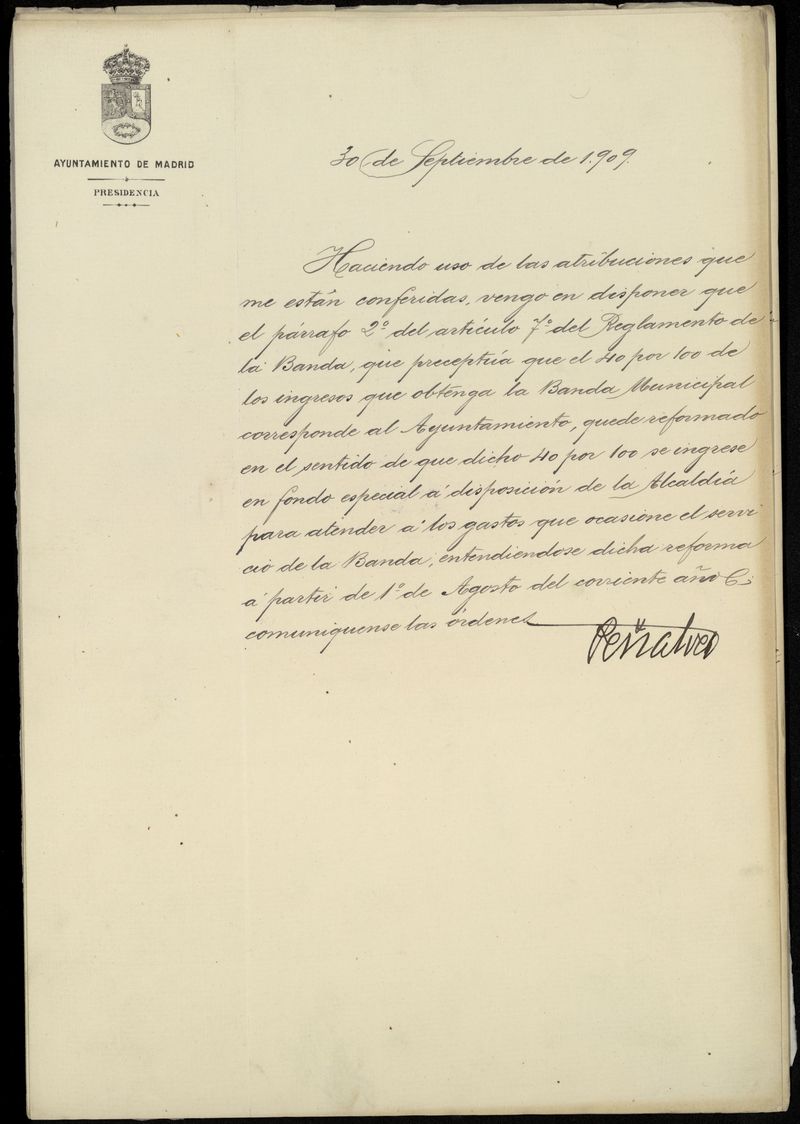 AYUNTAMIENTO DE MADRID
PRESIDENCIA
30 de Septiembre de 1.909.
Haciendo uso de las atribuciones que
me están conferidas, vengo en disponer que
el párrafo 2º del artículo 7º del Reglamento de
la Banda, que preceptúa que el 40 por 100 de
los ingresos que obtenga la Banda Municipal
corresponde al Ayuntamiento, quede reformado
en el sentido de que dicho 40 por 100 se ingrese
en fondo especial á disposición de la Alcaldía
para atender á los gastos que ocasione el servi
cio de la Banda, entendiendose dicha reforma
á partir de 1º de Agosto del corriente año
comuniquense las órdenes
Peñalver